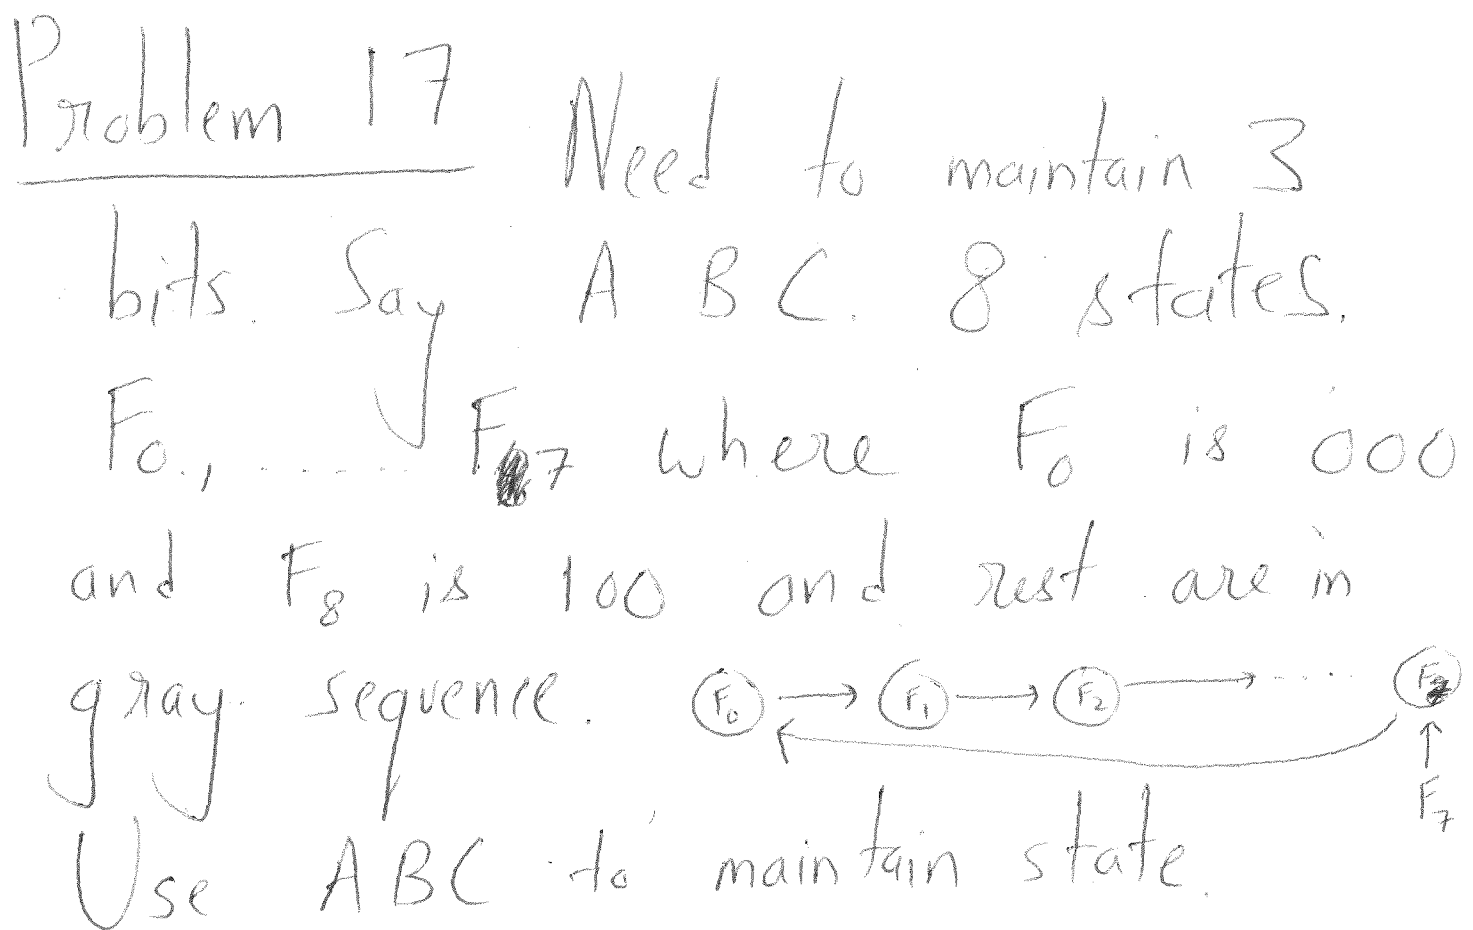 Problem 17 Need to maintain 3
bits. Say A B C. 8 states.
F0., ...... F7 where F0 is 000
and F8 is 100 and rest are in
gray sequence. F0 → F1 → F2 → ....
F7
Use ABC to maintain state.